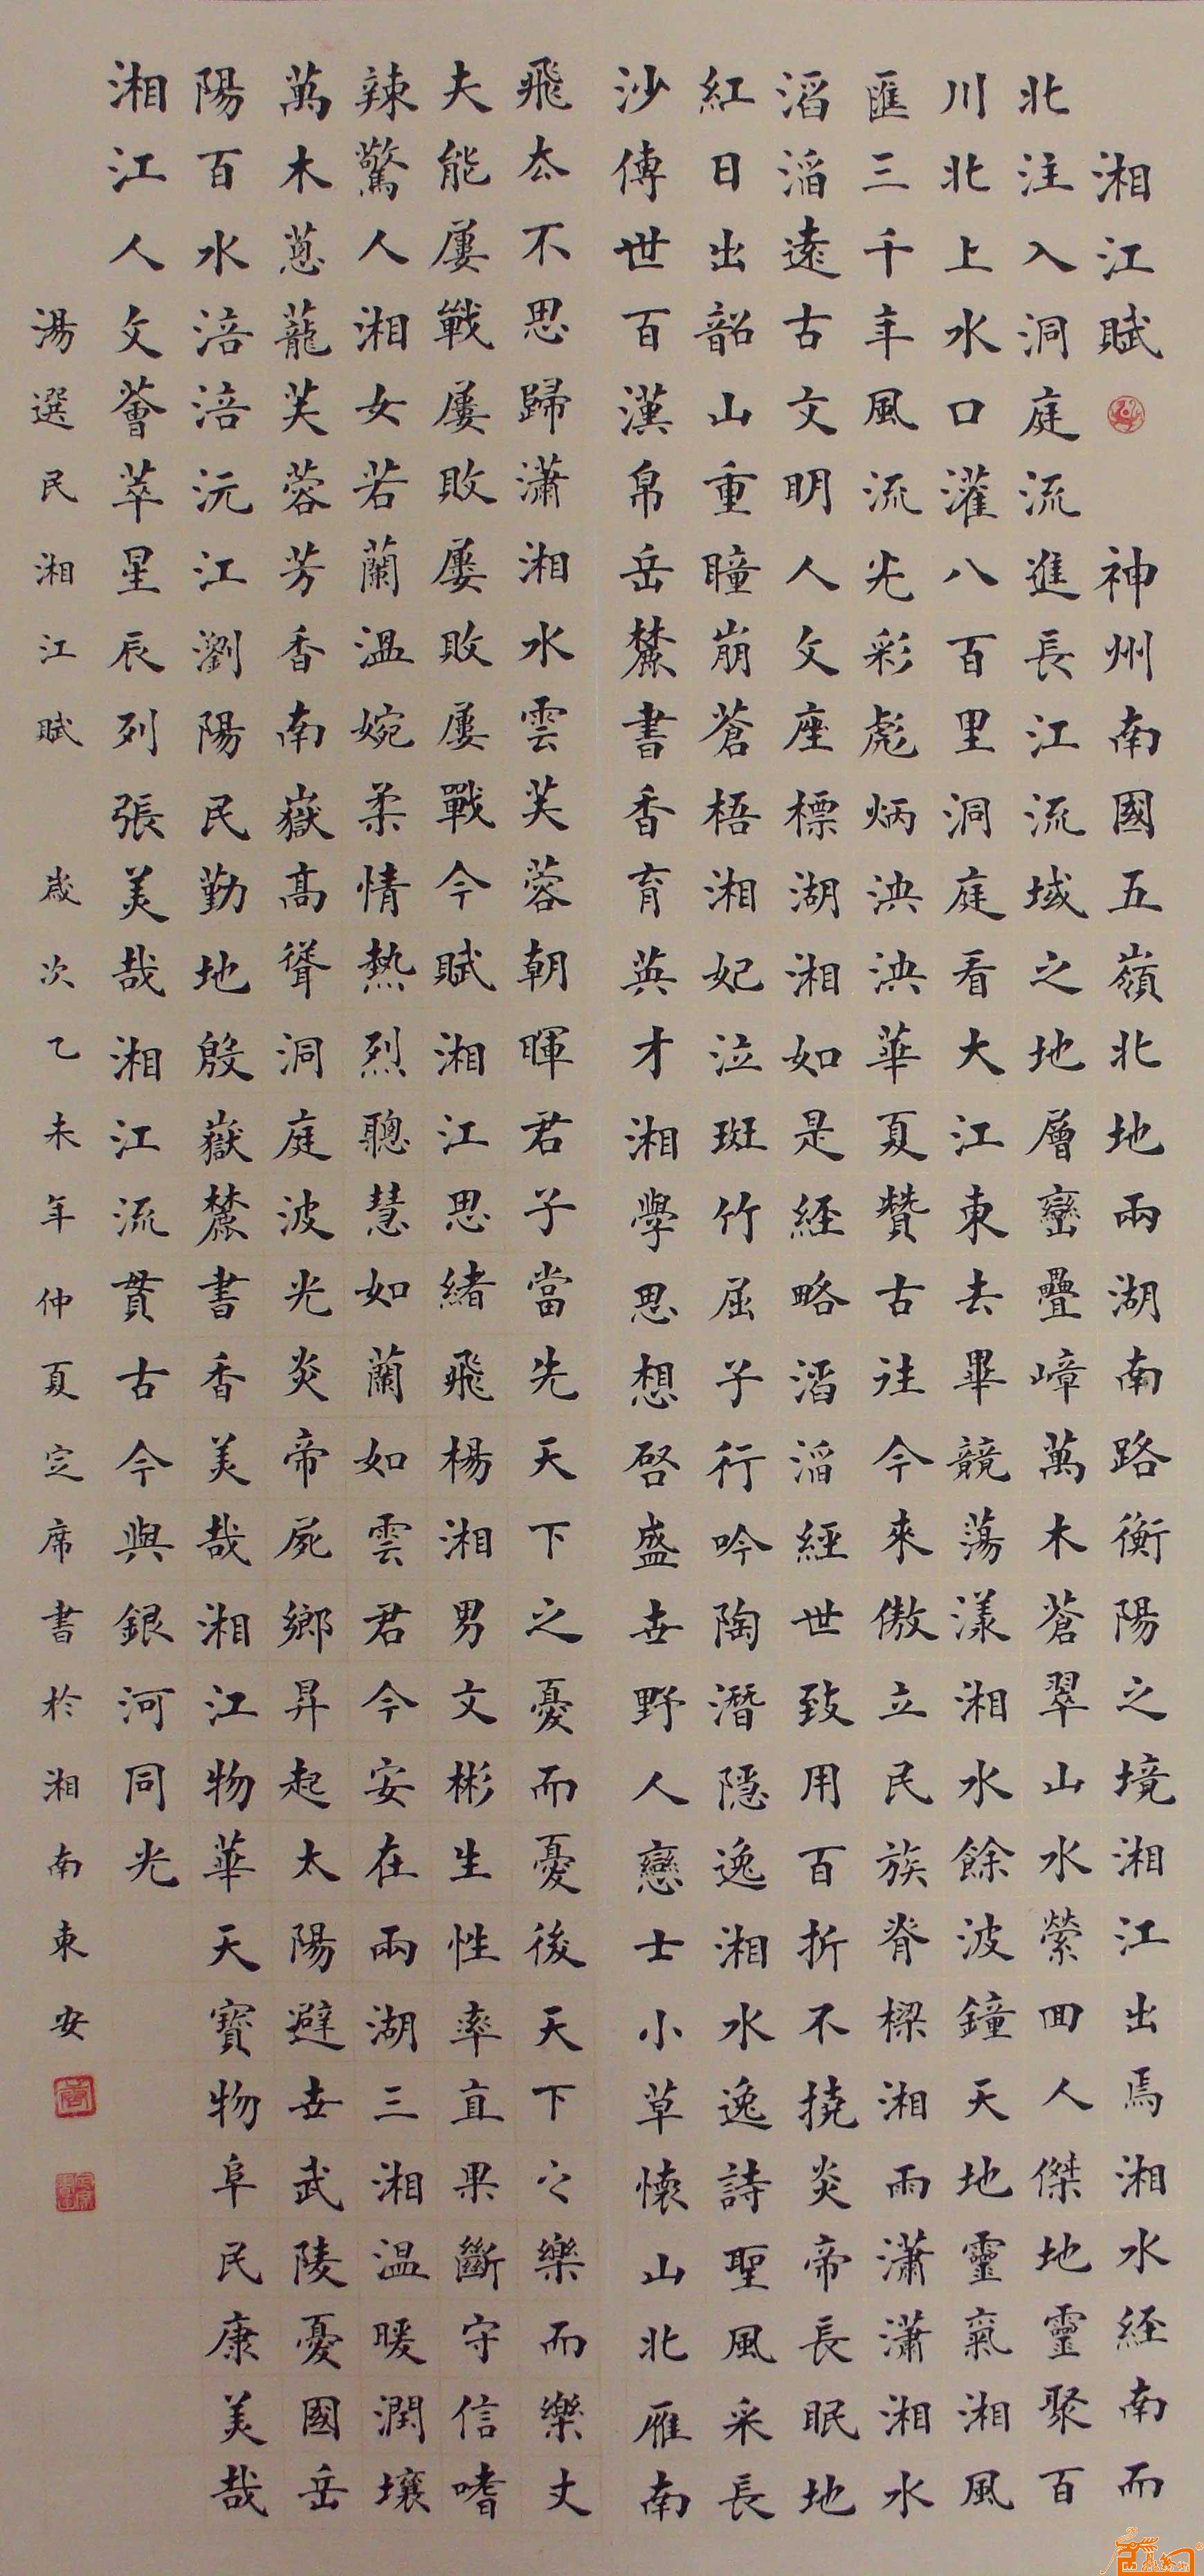 湘江賦 神州南國五嶺北地兩湖南路衡陽之境湘江出焉湘水經南而
北注入洞庭流進長江流域之地層巒疊嶂萬木蒼翠山水縈回人傑地靈聚百
川北上水口灌八百里洞庭看大江東去畢競蕩漾湘水餘波鐘天地靈氣湘風
匯三千年風流光彩彪炳泱泱華夏贊古往今來傲立民族脊樑湘雨瀟瀟湘水
滔滔遠古文明人文座標湖湘如是經略滔滔經世致用百折不撓炎帝長眠地
紅日出韶山重瞳崩蒼梧湘妃泣斑竹屈子行吟陶潛隱逸湘水逸詩聖風采長
沙傳世百漢帛岳麓書香育英才湘學思想啓盛世野人戀士小草懷山北雁南
飛杳不思歸瀟湘水雲芙蓉朝暉君子當先天下之憂而憂後天下之樂而樂丈
夫能屢戰屢敗屢敗屢戰今賦湘江思緒飛楊湘男文彬生性率直果斷守信嗜
辣驚人湘女若蘭溫婉柔情熱烈聰慧如蘭如雲君今安在兩湖三湘温暖潤壤
萬木蔥蘢芙蓉芳香南嶽高聳洞庭波光炎帝死鄉昇起太陽避世武陵憂國岳
陽百水涪涪沅江瀏陽民勤地殷嶽麓書香美哉湘江物華天寶物阜民康美哉
湘江人文薈萃星辰列張美哉湘江流貫古今與銀河同光
湯選民湘江賦 歲次乙未年仲夏定席書於湘南東安